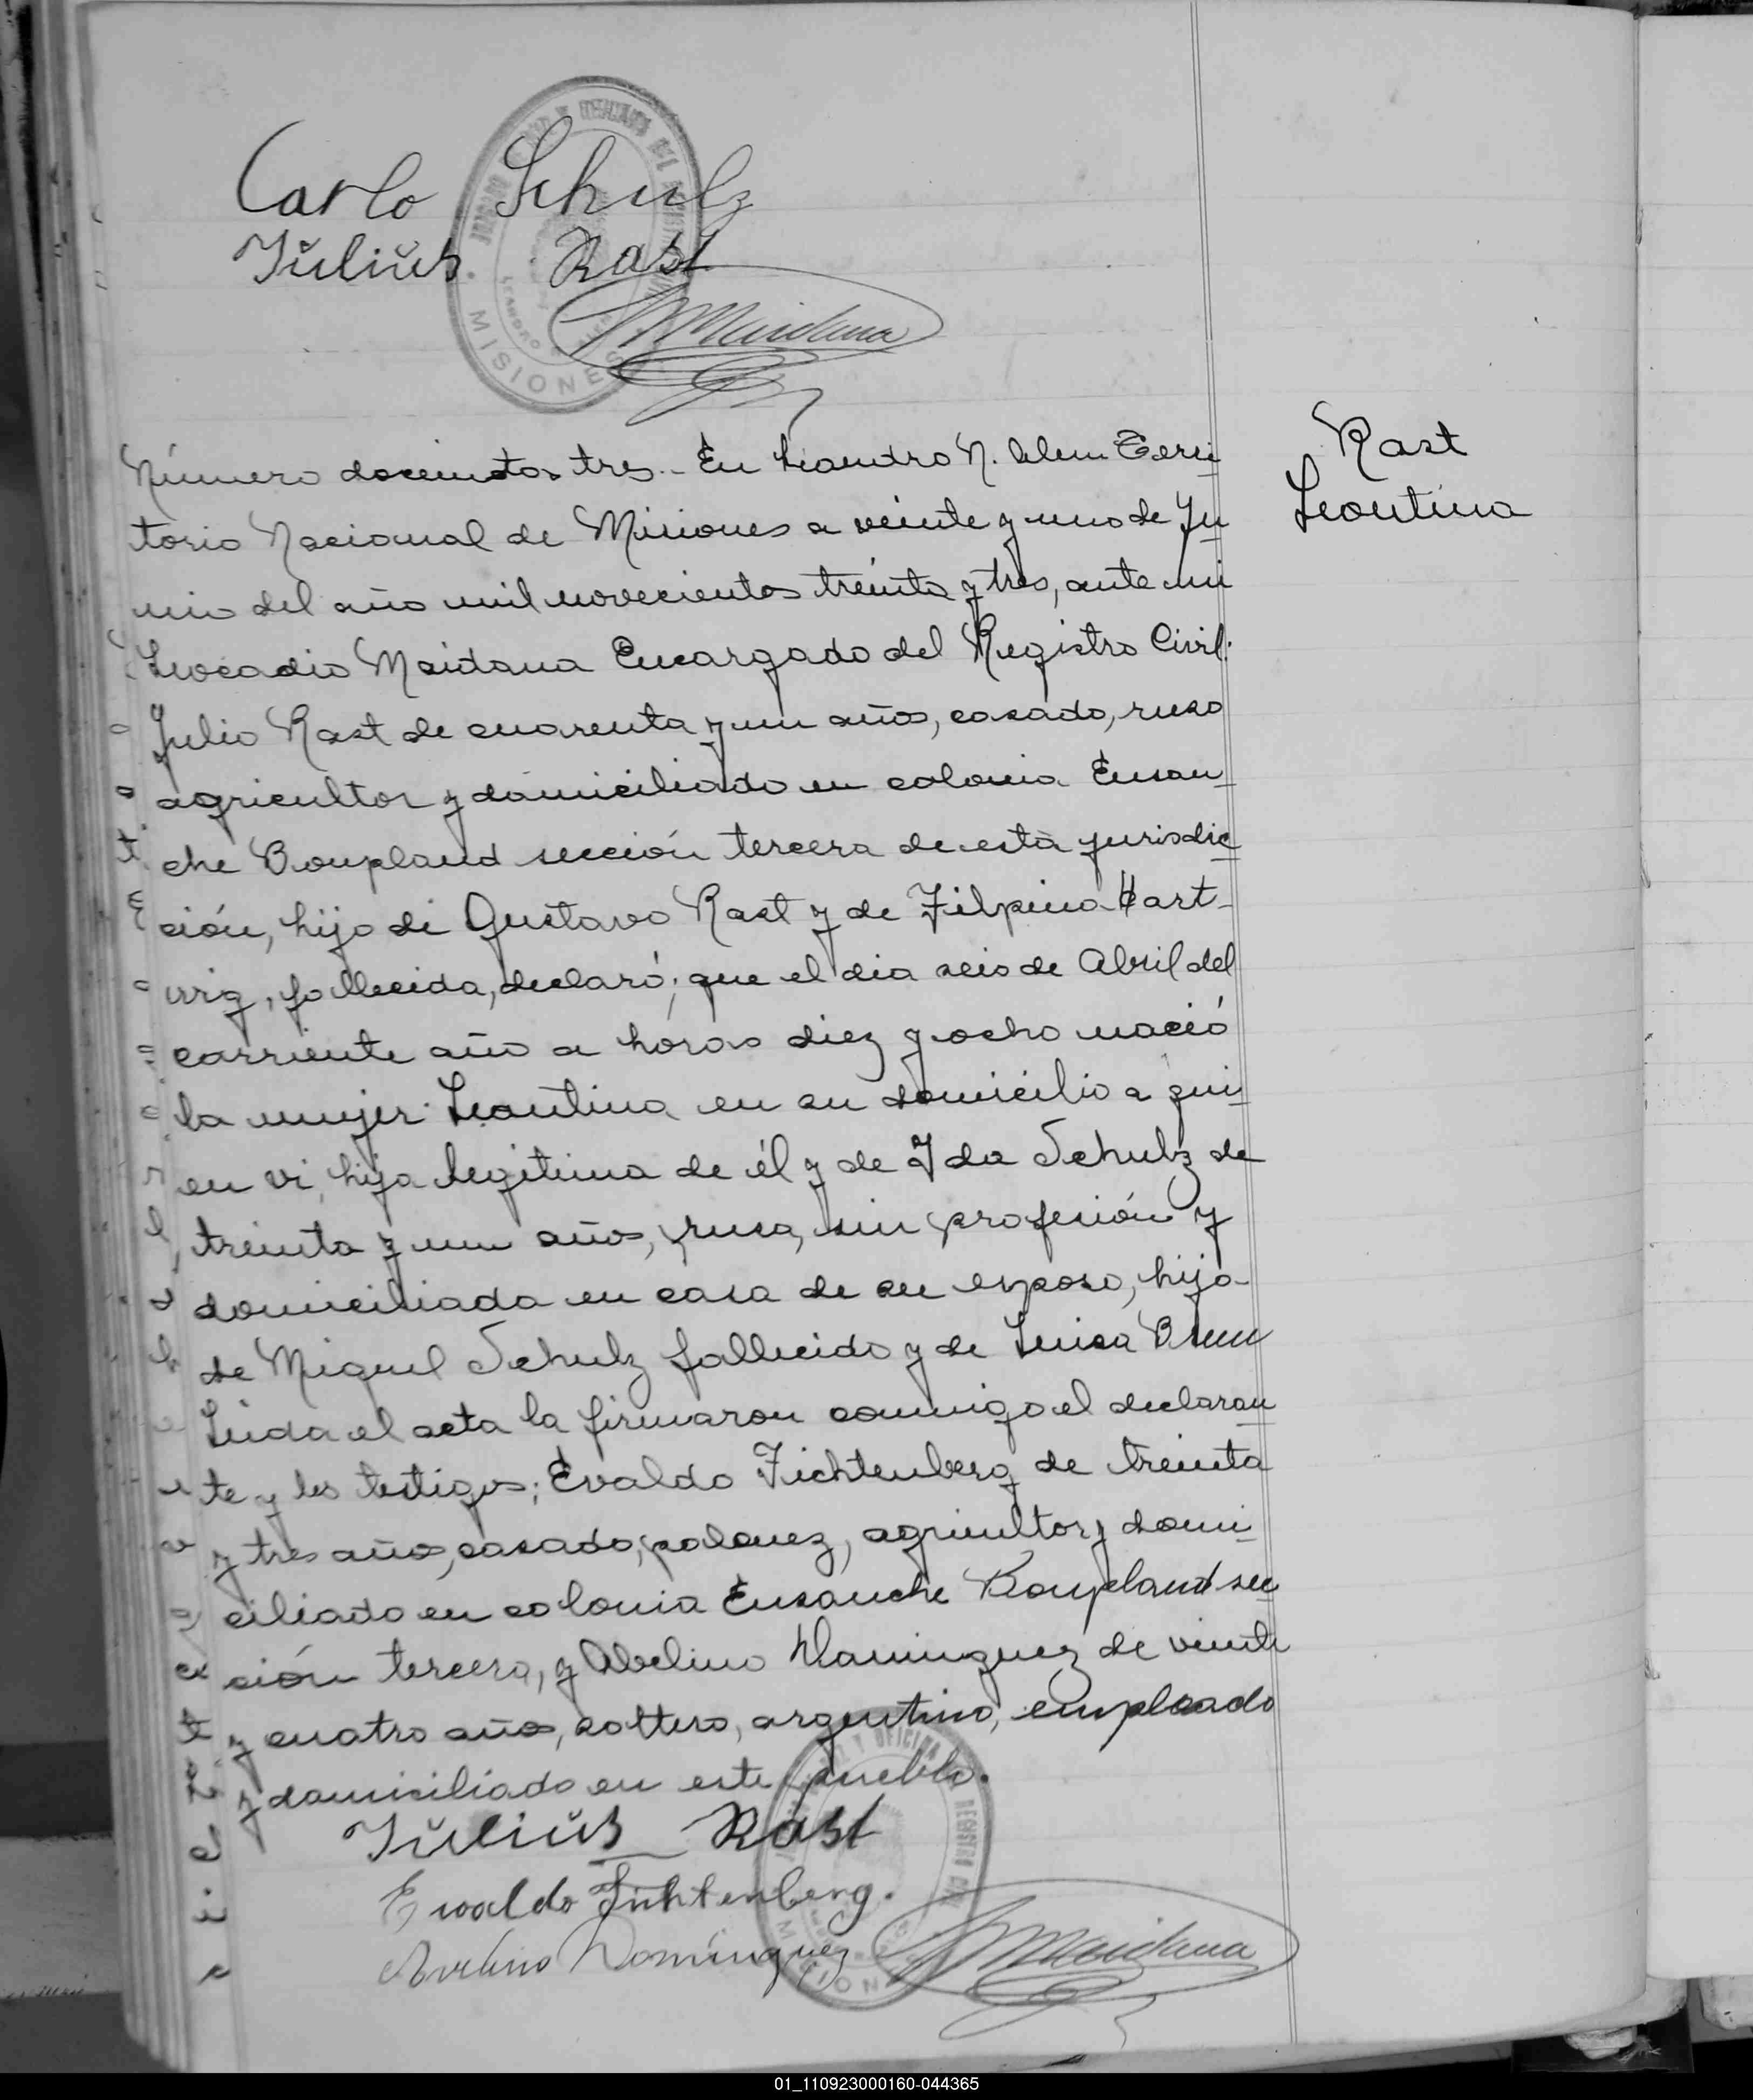 Carlo Schulz
Julius Rast
MISIONES
Maidana
Número doscientos tres.- En Leandro N. Alem Terri
torio Nacional de Misiones a veinte y uno de Ju
nio del año mil novecientos treinta y tres, ante mi
Leocadio Maidana Encargado del Registro Civil:
Julio Rast de cuarenta y un años, casado, ruso
agricultor y domiciliado en colonia Ensan
che Bonpland sección tercera de esta jurisdic
ción, hijo de Gustavo Rast y de Filpina Hart-
wig, fallecida, declaró; que el dia seis de Abril del
corriente año a horas diez y ocho nació
la mujer Leontina en su domicilio a qui
en vi, hija legitima de él y de Ida Schulz de
treinta y un años, rusa, sin profesión y
domiciliada en casa de su esposo, hija
de Miguel Schulz fallecido y de Luisa
Leida el acta la firmaron conmigo el declaran
te y los testigos; Evaldo Fichtenberg de treinta
y tres años, casado, polonez, agricultor y domi
ciliado en colonia Ensanche Bonpland sec
ción tercera, y Abelino Dominguez de veinte
y cuatro años, soltero, argentino, empleado
y domiciliado en este pueblo.
Julius Rast
Ewaldo Fichtenberg.
Avelino Domínguez
Maidana
Rast
Leontina
01_110923000160-044365